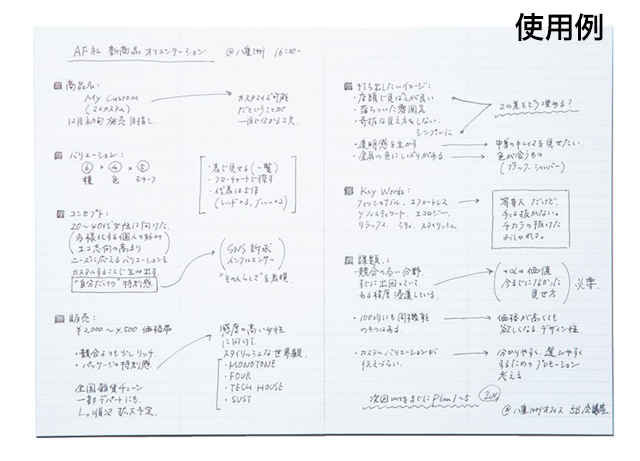 使用例
AF社 新商品 オリエンテーション @八重洲 16:30-
商品名:
My Custom
(マイカスタム)
12月初旬 発売目指し。
カスタマイズ可能
だということが
一目で分かる工夫。
バリエーション:
⑥ × ④ × ⑤
種 色 モチーフ
・表で見せる(一覧)
・フローチャートで探す
・代表は5作
(レッド×3、ブルー×2)
コンセプト:
20~40代女性に向けた、
多様化する個人の好み
エコ志向の高まり
ニーズに応えるバリエーションを
カスタムすることで生み出す
"自分だけの"特別感
SNS訴求
インフルエンサー
"その人らしさ"を表現。
販売:
¥2,000~4,500 価格帯
・競合よりも少しリッチ。
・パッケージの特別感
全国雑貨チェーン
一部デパートにも。
↳順次 拡大予定。
感度の高い女性
に向けて。
スタイリッシュな世界観。
・MONOTONE
・FOUR
・TECH HOUSE
・SUST
打ち出したいイメージ:
・店頭で見ばえが良い
・落ちついた雰囲気
・奇抜な見え方をしない。
シンプルに
・透明感を生かす
・金具の色にしばりがある
この差をどう埋める?
中身のキレイさを見せたい。
色が合うもの
(ブラック、シルバー)
Key Words:
プロフェッショナル、エフォートレス
ソフィスティケート、エコロジー、
リラックス、シック、スタイリッシュ
等身大だけど、
手は抜かない。
チカラの抜けた
おしゃれさ。
課題:
・競合の多い分野。
すでに出回っていて、
ある程度浸透している。
+αの価値
今までになかった
見せ方
必要
・100均にも同機能
のものはある。
価格が高くても
欲しくなるデザイン性。
・カスタムバリエーションが
伝えづらい。
分かりやすく、選びやすく
するためのプロモーション
考える。
次回mtgまでにPlan1~5
@八重洲オフィス 5B会議室